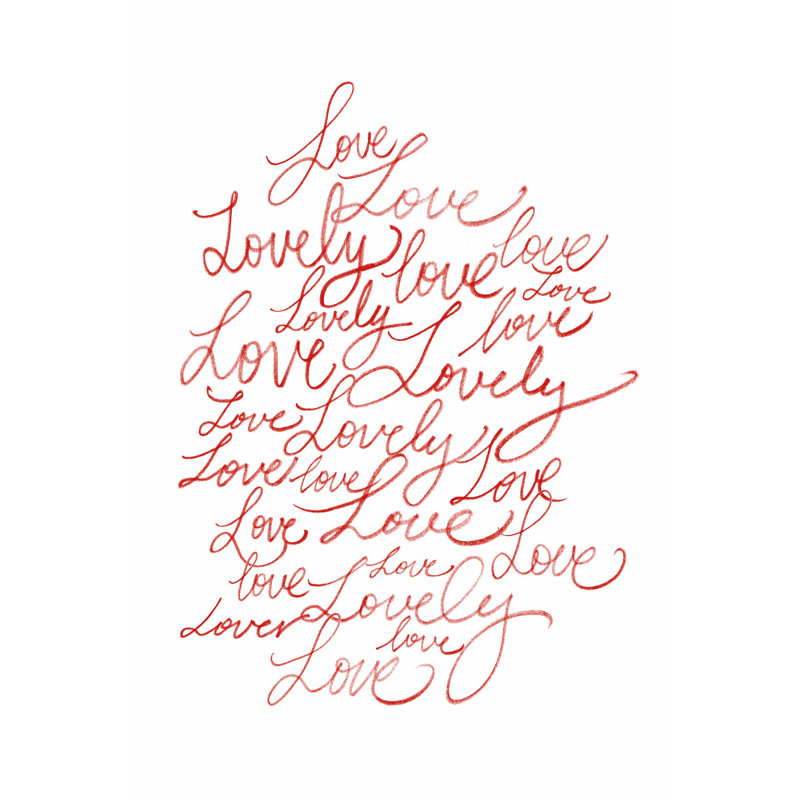 Love
Love
Lovely love love
Love
Lovely love
Love Lovely
Love Lovely
Love love Love
Love Love Love
love Love
Lover Lovely
love
Love